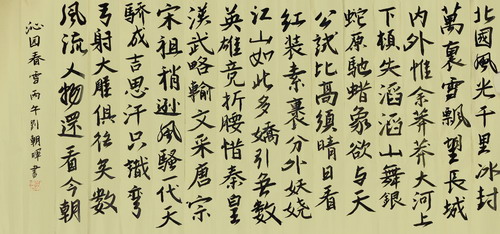 北國風光千里冰封
萬裏雪飄望長城
内外惟余莽莽大河上
下頓失滔滔山舞銀
蛇原馳蜡象欲与天
公試比高須晴日看
紅装素裹分外妖嬈
江山如此多嬌引無數
英雄競折腰惜秦皇
漢武略輸文采唐宗
宋祖稍遜風騷一代天
驕成吉思汗只識彎
弓射大雕俱往矣數
風流人物還看今朝
沁园春雪丙午刘朝暉書